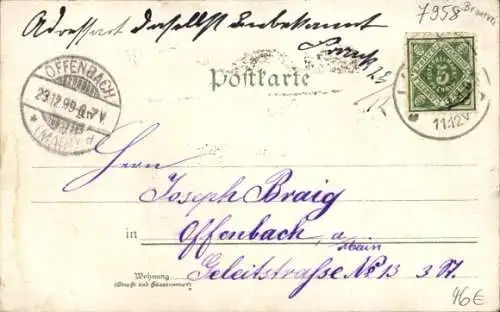 Adressat daselbst unbekannt
7958
Postkarte
OFFENBACH
23.12.99.6-7V
5
11-12V
Herrn
Joseph Braig
in Offenbach, a
Main
Wohnung
(Straße und Hausnummer)
Geleitstrasse No 13 3 St.
46€